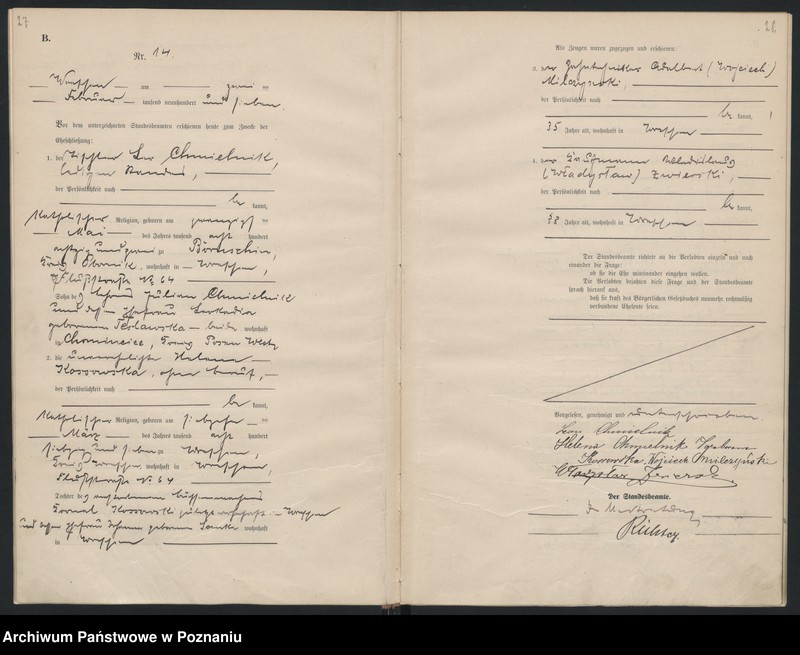 27
B.
Nr. 14.
Wreschen am zwei ten
Februar tausend neunhundert und sieben.
Vor dem unterzeichneten Standesbeamten erschienen heute zum Zwecke der
Eheschließung:
1. der Leo Chmielnik,
ledigen Standes,
der Persönlichkeit nach
be kannt,
katholischer Religion, geboren am zwanzigsten
Mai des Jahres tausend acht hundert
achtzig und zwei zu
Kreis Obornik, wohnhaft in Wreschen,
No 64
Sohn des Lehrers Julian Chmielnik
und dessen Ehefrau Leokadia
geborenen beide wohnhaft
in Kreis Posen West,
2. die unverehelichte Helena
Kossowska, ohne Beruf,
der Persönlichkeit nach
be kannt,
katholischer Religion, geboren am ten
März des Jahres tausend acht hundert
siebzig und sieben zu Wreschen,
Kreis Wreschen, wohnhaft in Wreschen,
No 64
Tochter des Büchsenmachers
Kossowski zuletzt wohnhaft in Wreschen
und dessen Ehefrau geborenen wohnhaft
in Wreschen
28
Als Zeugen waren zugezogen und erschienen:
3. der Zahntechniker Adalbert (Wojciech)
Milczynski,
der Persönlichkeit nach
be kannt,
35 Jahre alt, wohnhaft in Wreschen
4. der Kaufmann
(Władysław) Zwierski,
der Persönlichkeit nach
be kannt,
Jahre alt, wohnhaft in Wreschen
Der Standesbeamte richtete an die Verlobten einzeln und nach
einander die Frage:
ob sie die Ehe miteinander eingehen wollen.
Die Verlobten bejahten diese Frage und der Standesbeamte
sprach hierauf aus,
daß sie kraft des Bürgerlichen Gesetzbuchs nunmehr rechtmäßig
verbundene Eheleute seien.
Vorgelesen, genehmigt und unterschrieben.
Leon Chmielnik
Helena Chmielnik geborene
Kossowska, Wojciech Milczyński
Władysław
Der Standesbeamte.
In Vertretung
Archiwum Państwowe w Poznaniu